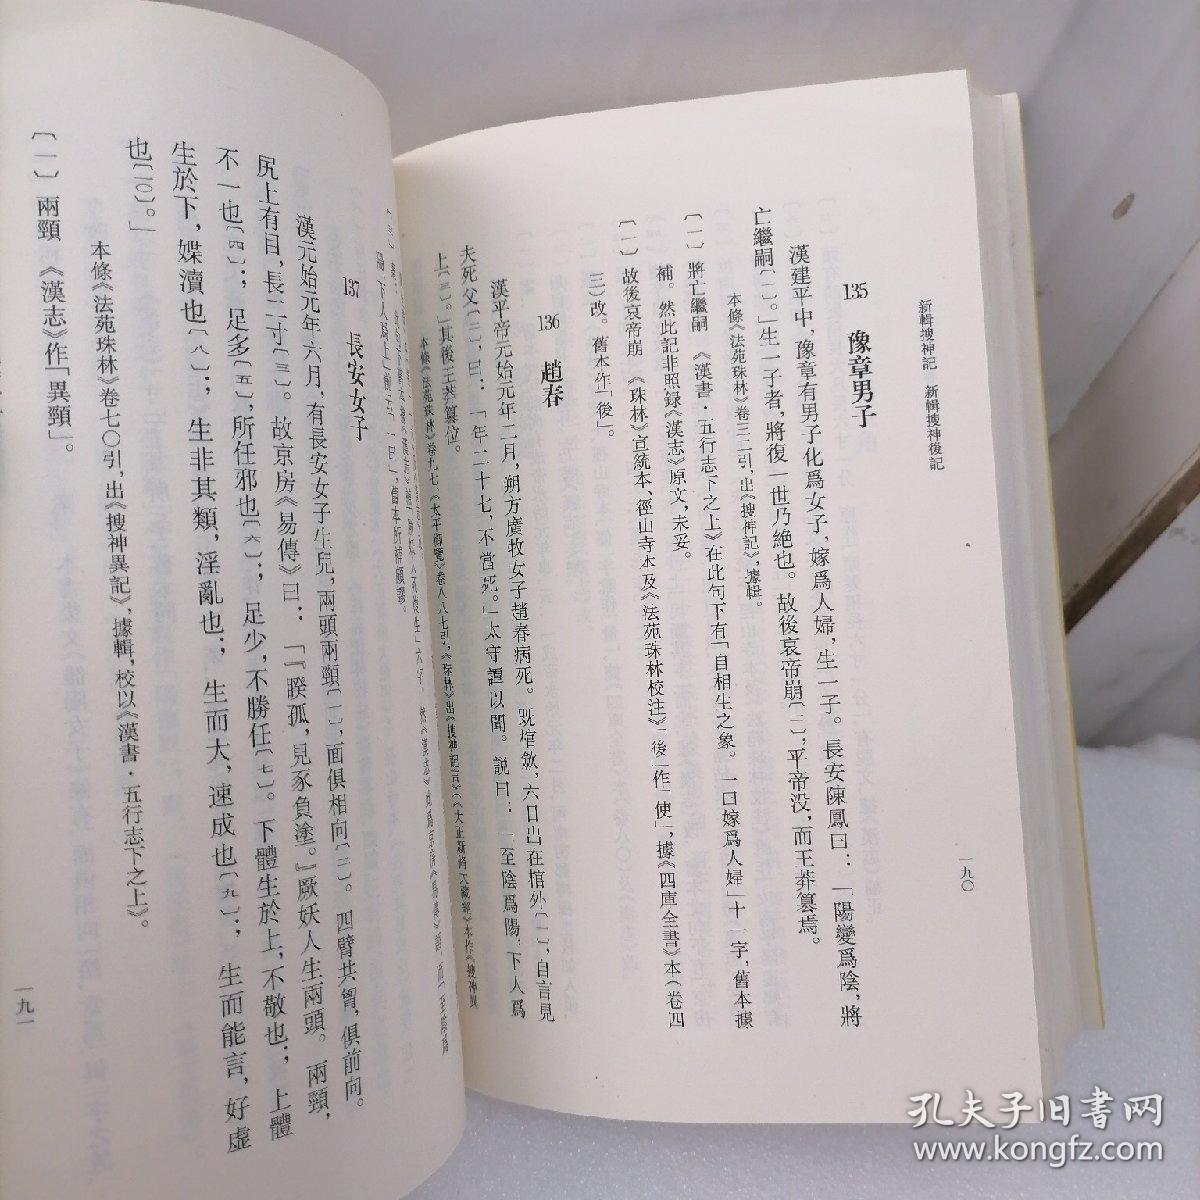 新輯搜神記　新輯搜神後記
一九〇
135　豫章男子
漢建平中，豫章有男子化爲女子，嫁爲人婦，生一子。長安陳鳳曰：「陽變爲陰，將
亡繼嗣〔一〕。」生一子者，將復一世乃絶也。故後哀帝崩〔二〕，平帝没，而王莽篡焉。
本條《法苑珠林》卷三二引，出《搜神記》，據輯。
〔一〕將亡繼嗣　《漢書·五行志下之上》在此句下有「自相生之象。一曰嫁爲人婦」十一字，舊本據
補。然此記非照録《漢志》原文，未妥。
〔二〕故後哀帝崩　《珠林》宣統本、徑山寺本及《法苑珠林校注》「後」作「使」，據《四庫全書》本（卷四
三）改。舊本作「後」。
136　趙春
漢平帝元始元年二月，朔方廣牧女子趙春病死。既棺斂，六日出在棺外〔一〕，自言見
夫死父〔二〕，曰：「年二十七，不當死。」太守譚以聞。説曰：「至陰爲陽，下人爲
上〔三〕。」其後王莽篡位。
本條《法苑珠林》卷九七、《太平御覽》卷八八七引，《珠林》出《搜神記》
137　長安女子
漢元始元年六月，有長安女子生兒，兩頭兩頸〔一〕，面俱相向〔二〕。四臂共胷，俱前向。
尻上有目，長二寸〔三〕。故京房《易傳》曰：「『睽孤，見豕負塗。』厥妖人生兩頭。兩頸，
不一也〔四〕；足多〔五〕，所任邪也〔六〕；足少，不勝任〔七〕。下體生於上，不敬也；上體
生於下，媟瀆也〔八〕；生非其類，淫亂也；生而大，速成也〔九〕；生而能言，好虚
也〔一〇〕。」
本條《法苑珠林》卷七〇引，出《搜神異記》，據輯，校以《漢書·五行志下之上》。
〔一〕兩頸　《漢志》作「異頸」。
一九一
孔夫子旧书网
www.kongfz.com